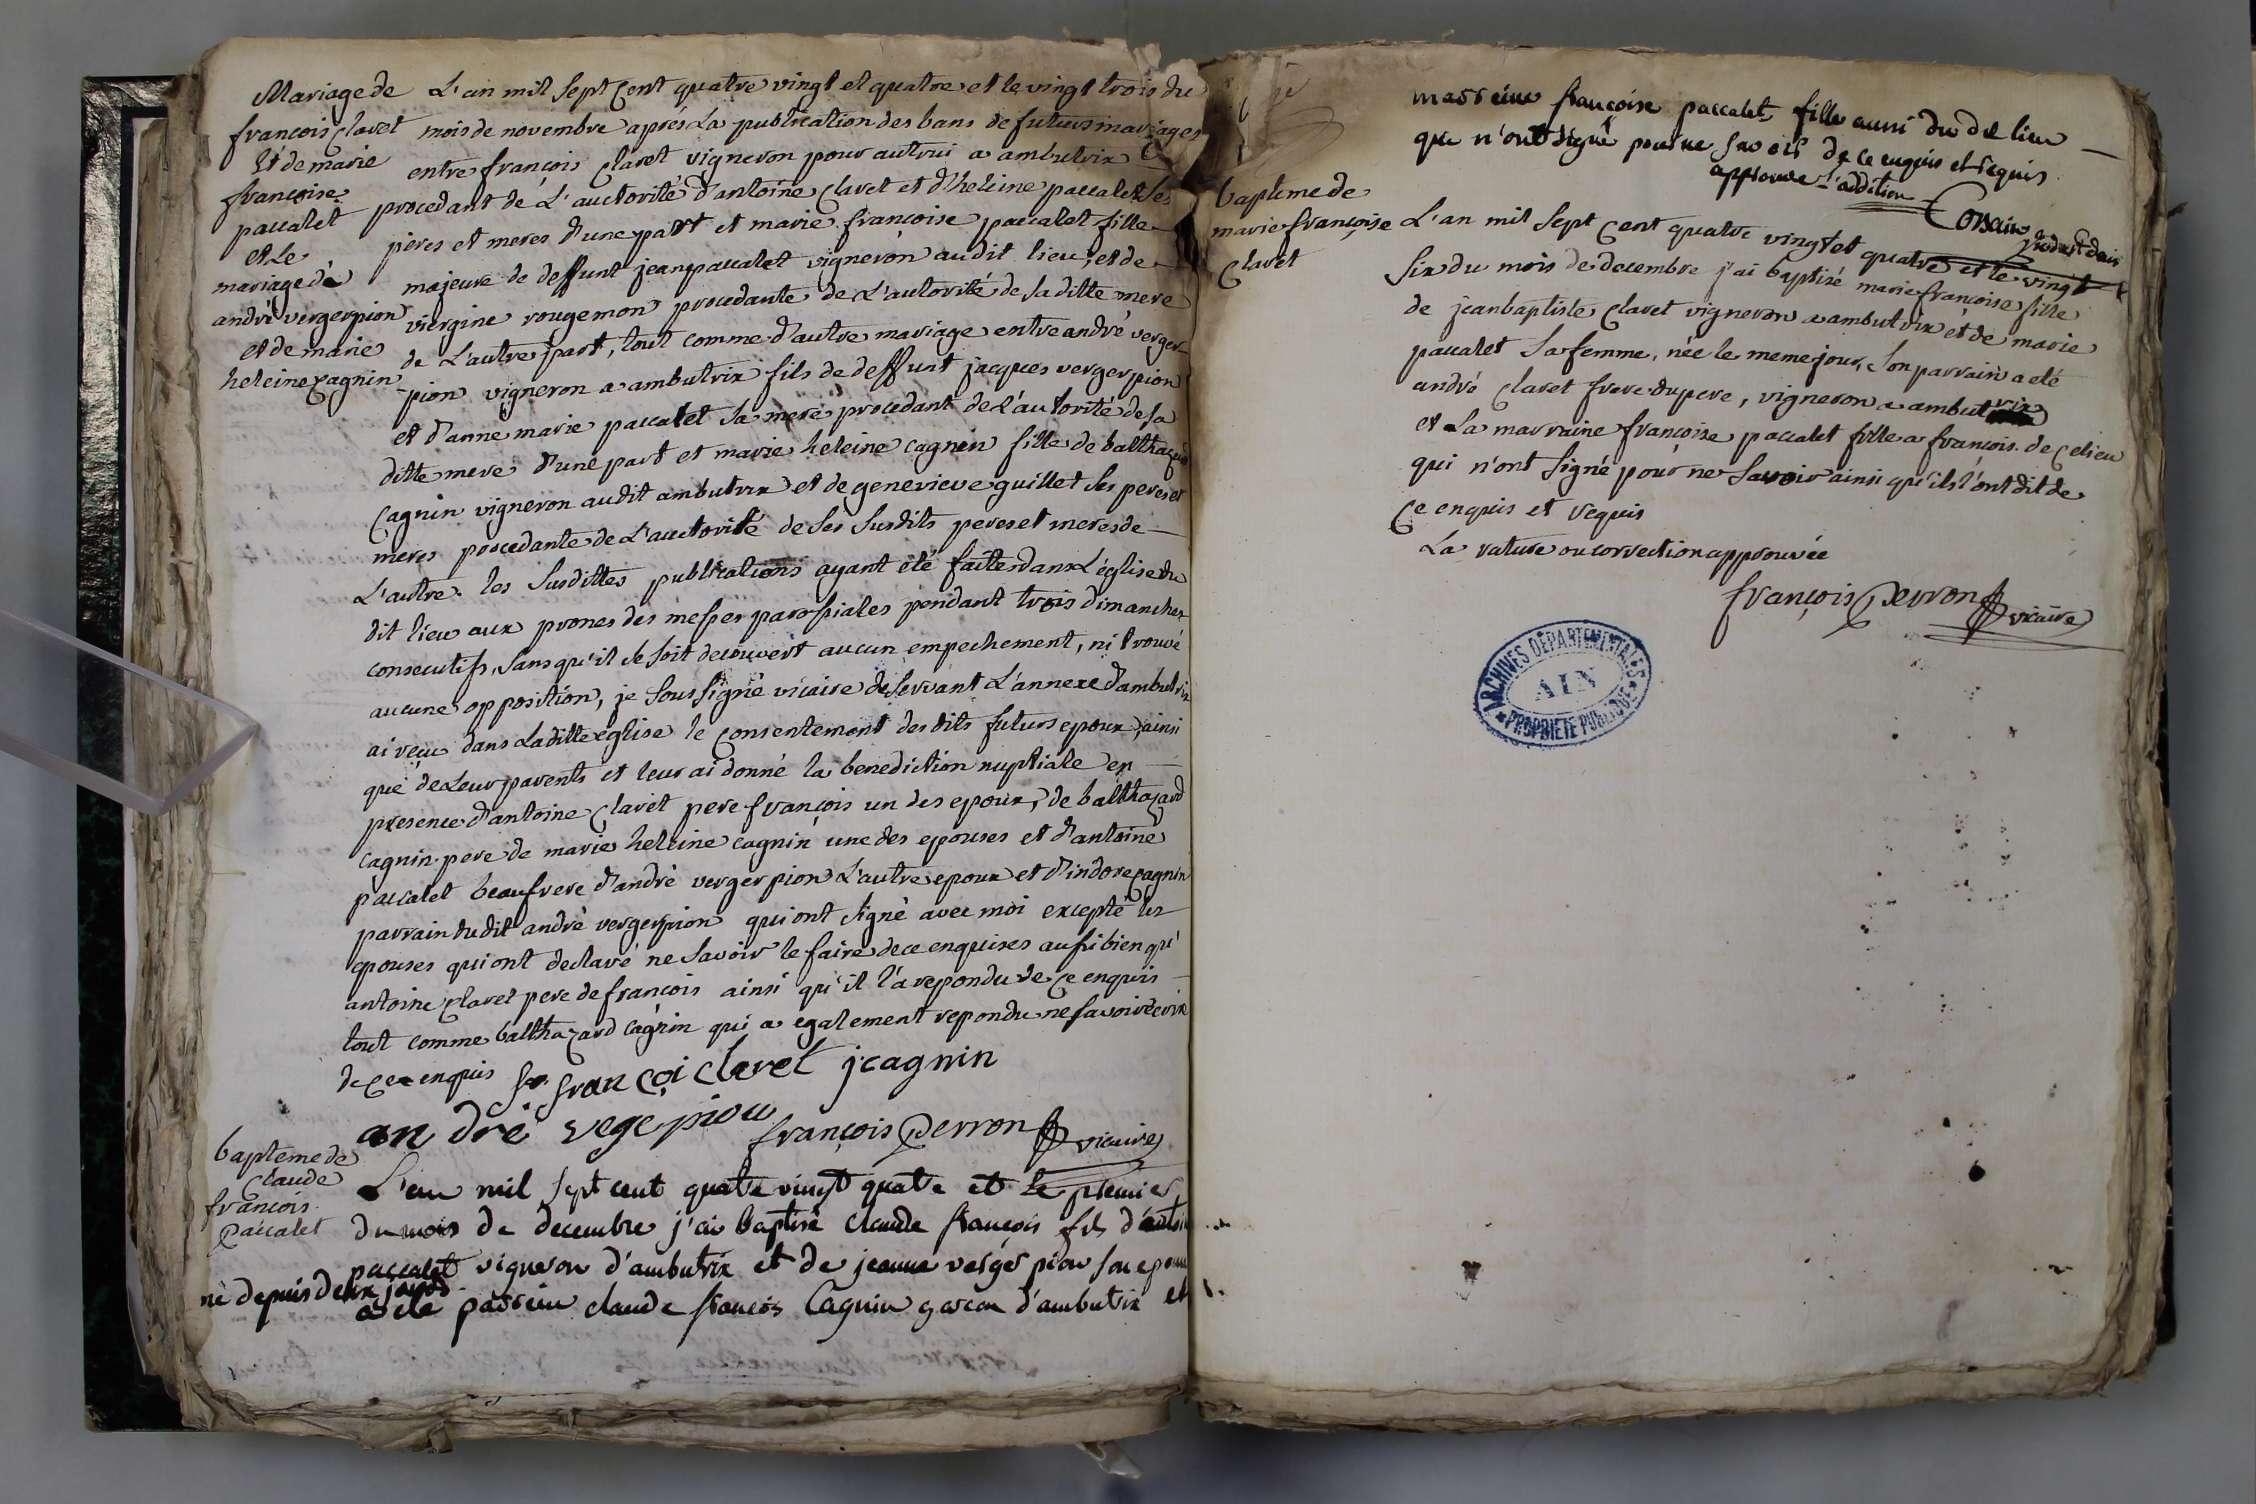 Mariage de
françois Clavet
Et de marie
françoise
paccalet
et le
mariage de
andré vergerpion
et de marie
heleine cagnin
L'an mil sept Cent quatre vingt et quatre et le vingt trois du
mois de novembre après La publication des bans de futurs mariages
entre françois Clavet vigneron pour autrui a ambutrix
procedant de L'auctorité d'antoine Clavet et d'heleine paccalet ses
pères et meres d'une part et marie françoise paccalet fille
majeure de deffunt jean paccalet vigneron audit lieu, et de
viergine rougemon procedante de L'autorité de sa ditte mere
de L'autre part, tout comme d'autre mariage entre andré verger
pion vigneron a ambutrix fils de deffunt jacques vergerpion
et d'anne marie paccalet sa mere procedant de l'autorité de sa
ditte mere d'une part et marie heleine cagnin fille de balthazard
Cagnin vigneron audit ambutrix et de genevieve guillet ses peres et
meres procedante de L'auctorité de ses susdits peres et meres de
L'autre. les susdittes publications ayant été faites dans L'église du
dit lieu aux prones des messes parossiales pendant trois dimanches
consecutifs, sans qu'il se soit decouvert aucun empechement, ni trouvé
aucune opposition, je soussigné vicaire desservant L'annexe d'ambutrix
ai reçu dans laditte eglise le consentement desdits futurs epoux, ainsi
que de Leur parents et leur ai donné la benediction nuptiale en
presence d'antoine Clavet pere françois un des epoux, de balthazard
cagnin pere de marie heleine cagnin une des epouses et d'antoine
paccalet beaufrere d'andré vergerpion L'autre epoux et d'indore cagnin
parrain dudit andré vergerpion qui ont signé avec moi excepté les
epouses qui ont declaré ne savoir le faire de ce enquises aussi bien qu'
antoine Clavet pere de françois ainsi qu'il l'a repondu de ce enquis
tout comme balthazard cagnin qui a egalement repondu ne savoir écrire
de ce enquis françoi clavet j cagnin
an dré vege piou françois Perron vicaire
baptême de
Claude
françois
Paccalet
L'an mil sept cent quatre vingt quatre et le premier
du mois de decembre j'ai baptisé claude françois fils d'antoi
paccalet vigneron d'ambutrix et de jeanne verger pion son epouse
né depuis deux jours
a été parrein claude françois Cagnin garçon d'ambutrix et
marreine françoise paccalet fille aussi du dit lieu
que n'ont signé pour ne savoir de ce enquis et requis
approuve l'addition
baptême de
marie françoise
Clavet
L'an mil sept Cent quatre vingt et quatre et le vingt
six du mois de decembre j'ai baptisé marie françoise fille
de jean baptiste Clavet vigneron a ambutrix et de marie
paccalet sa femme, née le meme jour, son parrain a eté
andré Clavet frere du pere, vigneron a ambutrix
et La marraine françoise paccalet fille a françois de Ce lieu
qui n'ont signé pour ne savoir ainsi qu'ils l'ont dit de
Ce enquis et requis
La rature ou correction approuvée
françois Perron vicaire
ARCHIVES DÉPARTEMENTALES
AIN
PROPRIÉTÉ PUBLIQUE